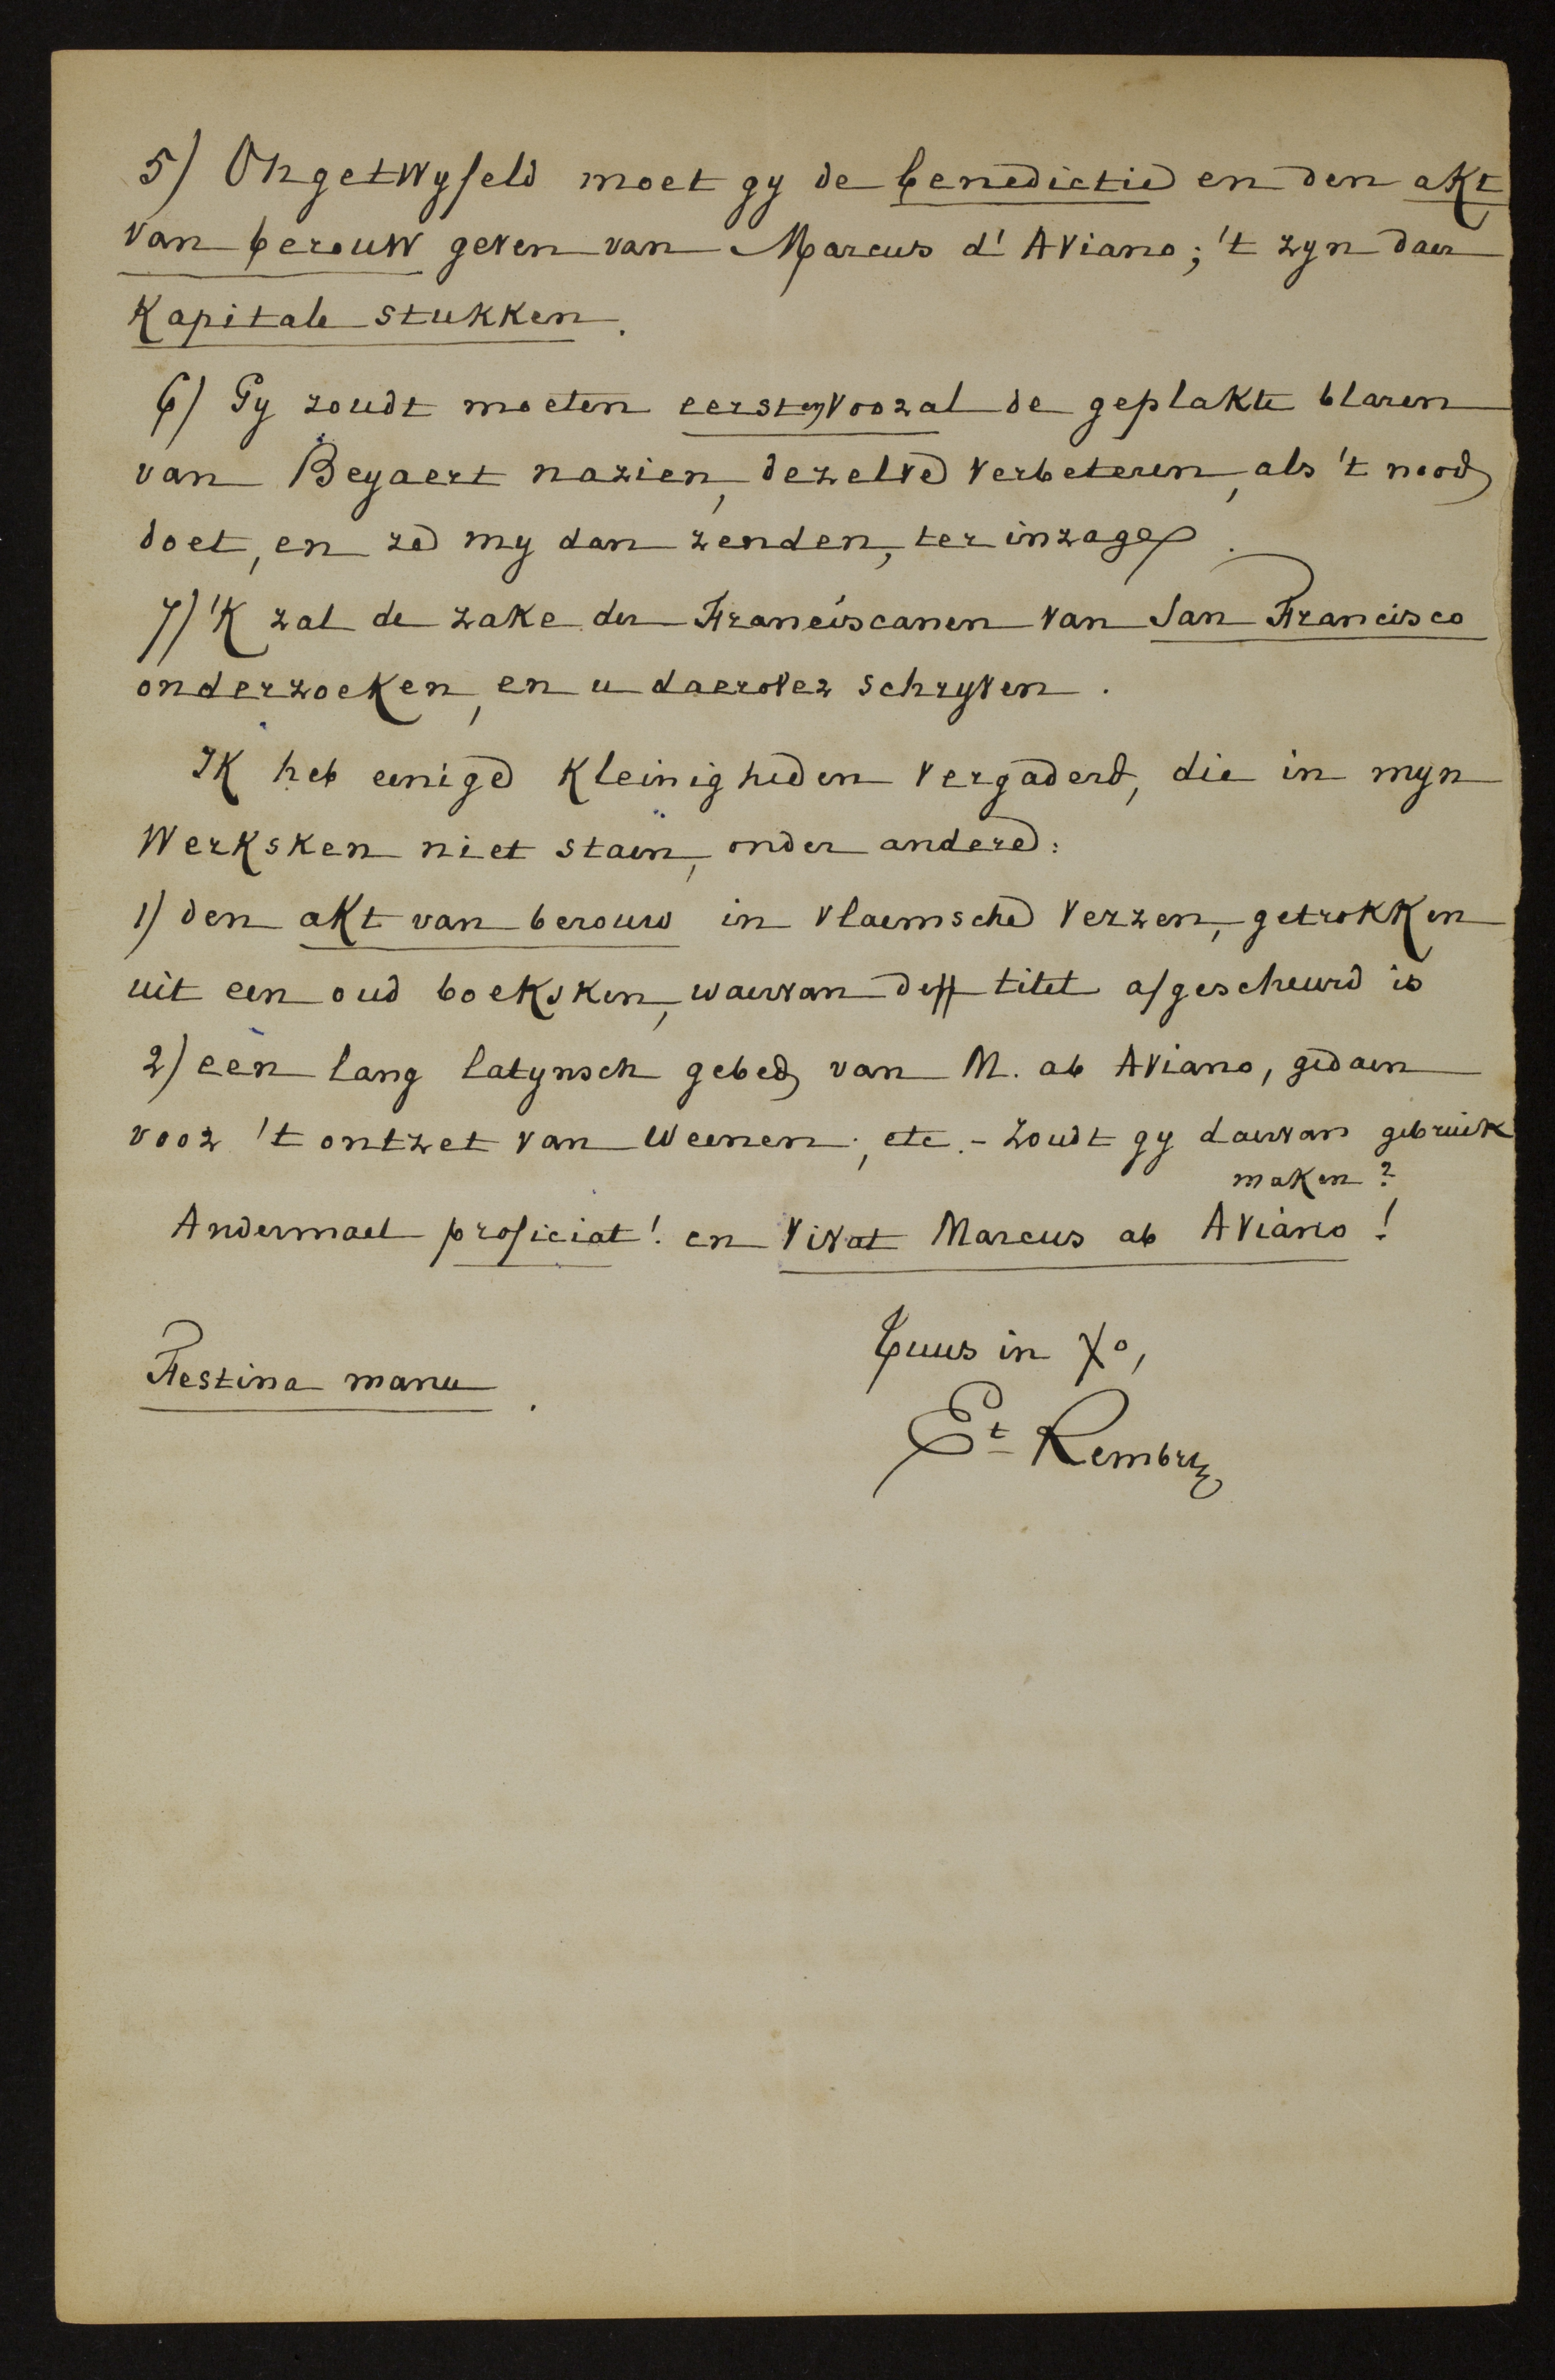 5) Ongetwyfeld moet gy de benedictie en den akt
van berouw geven van Marcus d'Aviano; 't zyn daer
kapitale stukken.
6) Gy zoudt moeten eerst en vooral de geplakte blaren
van Beyaert nazien, dezelve verbeteren, als 't nood
doet, en ze my dan zenden, ter inzage.
7) 'K zal de zake der Franciscanen van San Francisco
onderzoeken, en u daerover schryven.
Ik heb eenige kleinigheden vergaderd, die in myn
werksken niet staen, onder andere:
1) den akt van berouw in vlaemsche verzen, getrokken
uit een oud boeksken, waervan de titel afgescheurd is
2) een lang latynsch gebed van M. ab Aviano, gedaen
voor 't ontzet van Weenen; etc. - Zoudt gy daervan gebruik
maken?
Andermael proficiat! en Vivat Marcus ab Aviano!
Tuus in Xo,
Festina manu.
Et Rembry